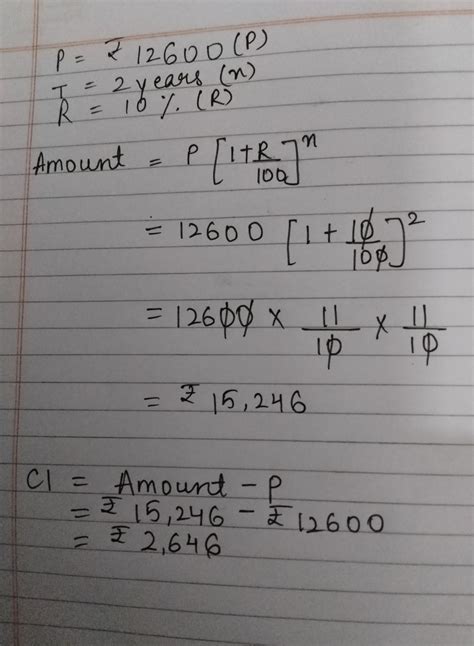 P = ₹ 12600 (P)
T = 2 years (n)
R = 10 %. (R)
Amount = P [1+R/100]^n
= 12600 [1 + 10/100]^2
= 12600 × 11/10 × 11/10
= ₹ 15,246
CI = Amount - P
= ₹ 15,246 - ₹ 12600
= ₹ 2,646